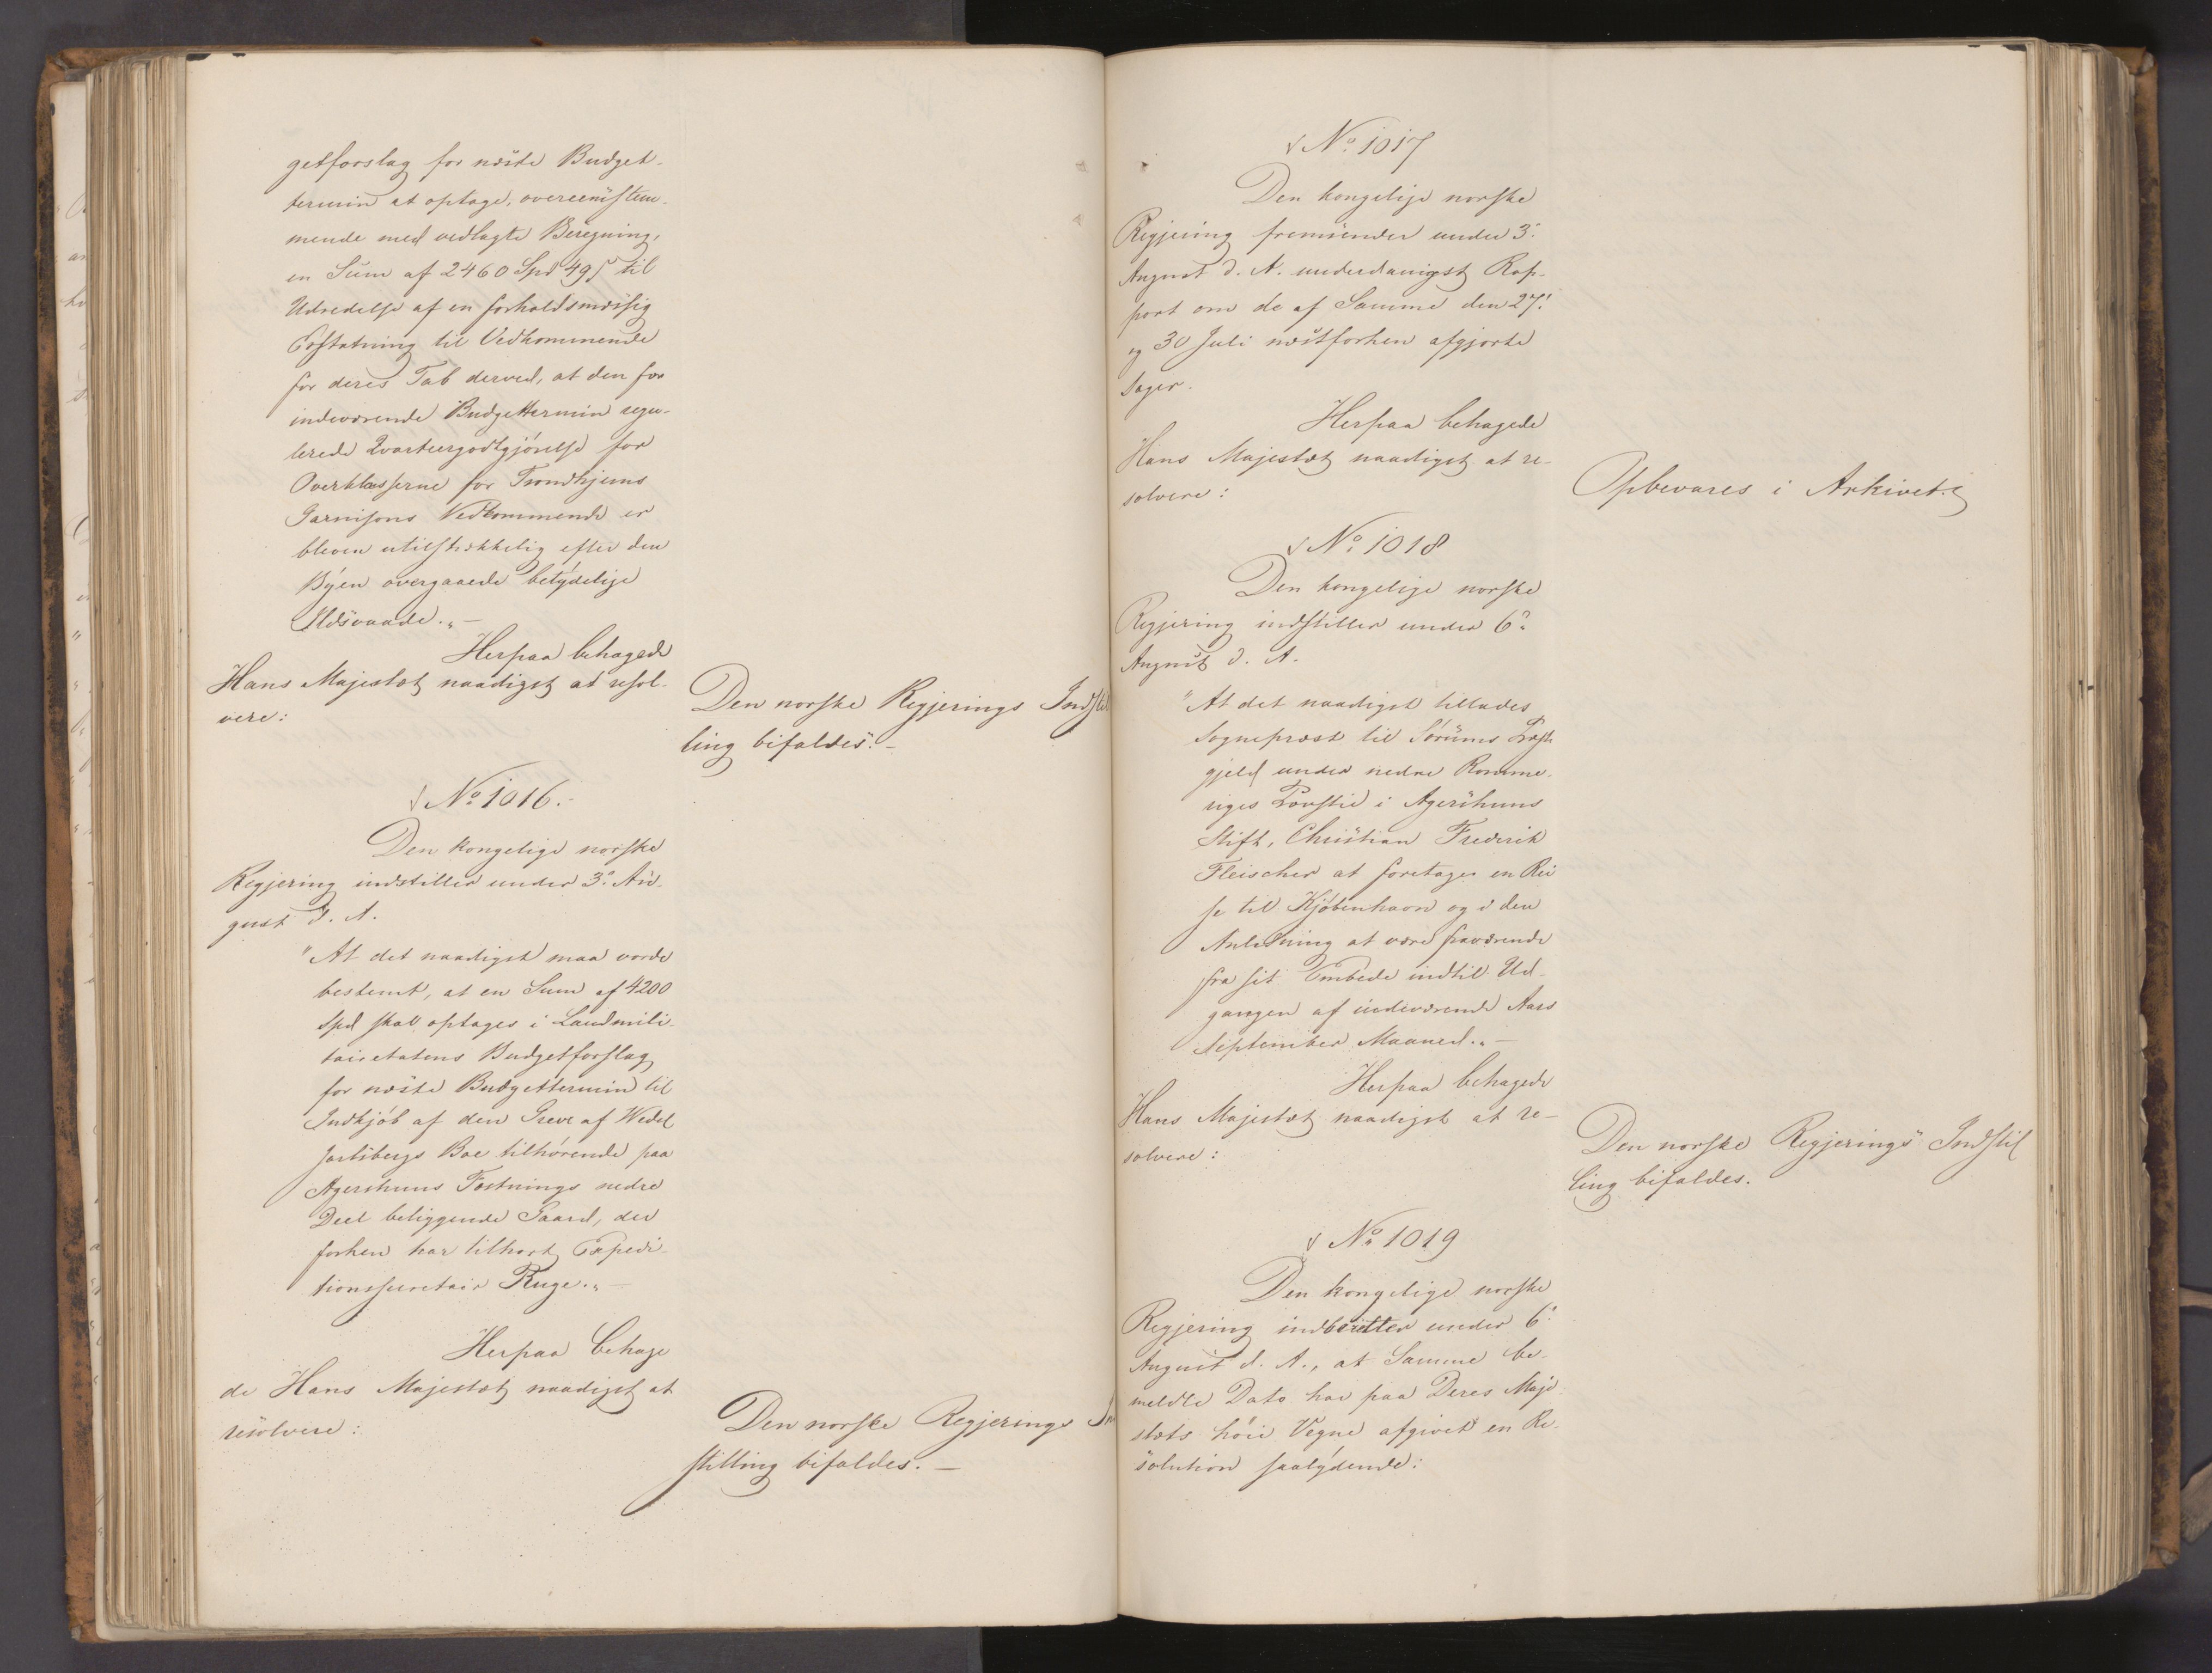 getforslag for næste Budget-
termin at optage, overeenistem-
mende med vedlagte Beregning,
en Sum af 2460 Spd 49 ß til
Udredelse af en forholdsmæssig
Erstatning til Vedkommende
for deres Tab derved, at den for
indeværende Budgettermin regu-
lerede Qvarteergodtgjørelse for
Overklasserne for Trondhjems
Garnisons Vedkommende er
bleven utilstrækkelig efter den
Byen overgaaede betydelige
Ildsvaade."-
Herpaa behagede
Hans Majestæt naadigst at resol-
vere:
Den norske Regjerings Indstil
ling bifaldes.-
No 1016.-
Den kongelige norske
Regjering indstiller under 3. Au-
gust d. A.
"At det naadigst maa vorde
bestemt, at en Sum af 4200
Spd skal optages i Landmili-
tairetatens Budgetforslag
for næste Budgettermin til
Indkjøb af den Greve af Wedel
Jarlsbergs Boe tilhørende paa
Agershuus Fæstnings nedre
Deel beliggende Gaard, der
forhen har tilhørt Expedi-
tionssecretair Ruge."-
Herpaa behage
de Hans Majestæt naadigst at
resolvere:
Den norske Regjerings In
stilling bifaldes.-
No 1017
Den kongelige norske
Regjering fremsender under 3.
August d. A. underdanigst Rap-
port om de af Samme den 27.
og 30 Juli næstforhen afgjorte
Sager.
Herpaa behagede
Hans Majestæt naadigst at re-
solvere:
Opbevares i Arkivet.
No 1018
Den kongelige norske
Regjering indstiller under 6.
August d. A.
"At det naadigst tillades
Sognepræst til Sørums Præste
gjeld under nedre Romme-
riges Provstie i Agershuus
Stift, Christian Frederik
Fleischer at foretage en Rei
se til Kjøbenhavn og i den
Anledning at være fraværende
fra sit Embede indtil Ud-
gangen af indeværende Aars
September Maaned."-
Herpaa behagede
Hans Majestæt naadigst at re-
solvere:
Den norske Regjerings Indstil
ling bifaldes.
No 1019
Den kongelige norske
Regjering indberetter under 6.
August d. A., at Samme be-
meldte Dato har paa Deres Maje
stæts høie Vegne afgivet en Re-
solution saalydende: